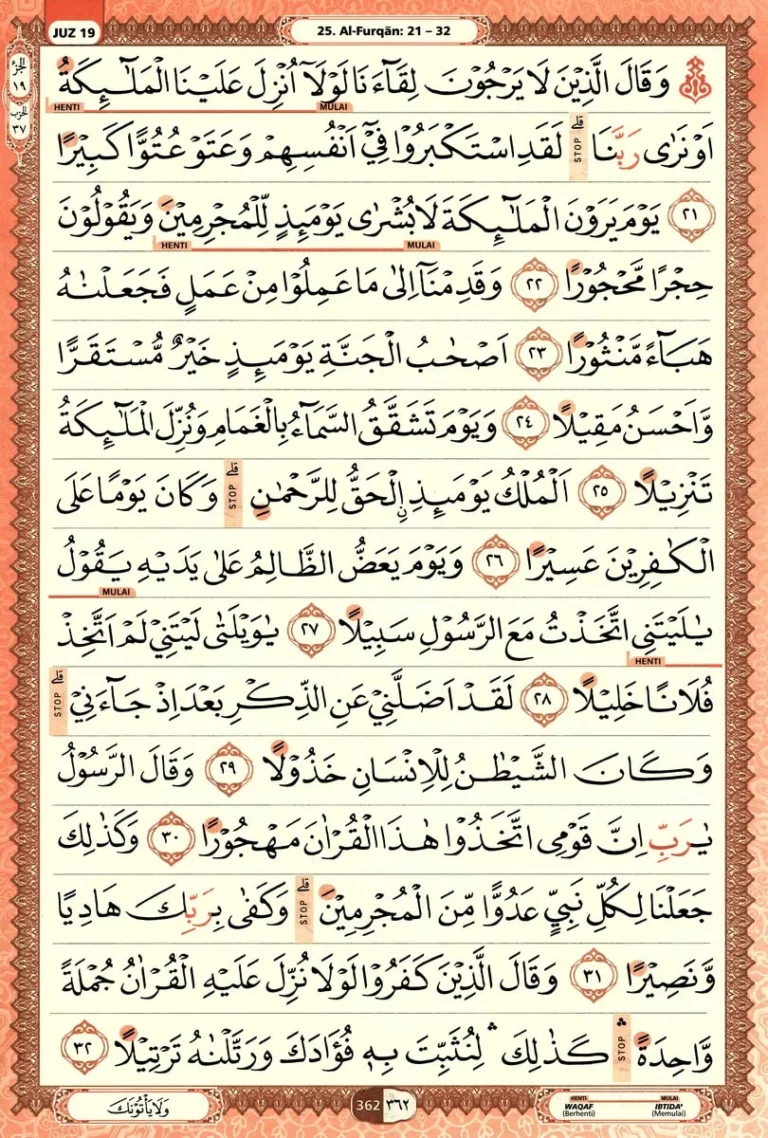 JUZ 19
25. Al-Furqān: 21 – 32
الجزء ١٩
الحزب ٣٧
وَقَالَ الَّذِيْنَ لَا يَرْجُوْنَ لِقَاۤءَنَا لَوْلَآ اُنْزِلَ عَلَيْنَا الْمَلٰۤىِٕكَةُ
HENTI MULAI
اَوْ نَرٰى رَبَّنَا ۗ STOP لَقَدِ اسْتَكْبَرُوْا فِيْٓ اَنْفُسِهِمْ وَعَتَوْ عُتُوًّا كَبِيْرًا
٢١ يَوْمَ يَرَوْنَ الْمَلٰۤىِٕكَةَ لَا بُشْرٰى يَوْمَىِٕذٍ لِّلْمُجْرِمِيْنَ وَيَقُوْلُوْنَ
HENTI MULAI
حِجْرًا مَّحْجُوْرًا ٢٢ وَقَدِمْنَآ اِلٰى مَا عَمِلُوْا مِنْ عَمَلٍ فَجَعَلْنٰهُ
هَبَاۤءً مَّنْثُوْرًا ٢٣ اَصْحٰبُ الْجَنَّةِ يَوْمَىِٕذٍ خَيْرٌ مُّسْتَقَرًّا
وَّاَحْسَنُ مَقِيْلًا ٢٤ وَيَوْمَ تَشَقَّقُ السَّمَاۤءُ بِالْغَمَامِ وَنُزِّلَ الْمَلٰۤىِٕكَةُ
تَنْزِيْلًا ٢٥ اَلْمُلْكُ يَوْمَىِٕذِ ِۨالْحَقُّ لِلرَّحْمٰنِ ۗ STOP وَكَانَ يَوْمًا عَلَى
الْكٰفِرِيْنَ عَسِيْرًا ٢٦ وَيَوْمَ يَعَضُّ الظَّالِمُ عَلٰى يَدَيْهِ يَقُوْلُ
MULAI
يٰلَيْتَنِى اتَّخَذْتُ مَعَ الرَّسُوْلِ سَبِيْلًا ٢٧ يٰوَيْلَتٰى لَيْتَنِيْ لَمْ اَتَّخِذْ
HENTI
فُلَانًا خَلِيْلًا ٢٨ لَقَدْ اَضَلَّنِيْ عَنِ الذِّكْرِ بَعْدَ اِذْ جَاۤءَنِيْ ۗ STOP
وَكَانَ الشَّيْطٰنُ لِلْاِنْسَانِ خَذُوْلًا ٢٩ وَقَالَ الرَّسُوْلُ
يٰرَبِّ اِنَّ قَوْمِى اتَّخَذُوْا هٰذَا الْقُرْاٰنَ مَهْجُوْرًا ٣٠ وَكَذٰلِكَ
جَعَلْنَا لِكُلِّ نَبِيٍّ عَدُوًّا مِّنَ الْمُجْرِمِيْنَ ۗ STOP وَكَفٰى بِرَبِّكَ هَادِيًا
وَّنَصِيْرًا ٣١ وَقَالَ الَّذِيْنَ كَفَرُوْا لَوْلَا نُزِّلَ عَلَيْهِ الْقُرْاٰنُ جُمْلَةً
وَّاحِدَةً ۛ STOP كَذٰلِكَ ۛ لِنُثَبِّتَ بِهٖ فُؤَادَكَ وَرَتَّلْنٰهُ تَرْتِيْلًا ٣٢
وَلَا يَأْتُوْنَكَ
362 ٣٦٢
HENTI MULAI
WAQAF IBTIDA'
(Berhenti) (Memulai)